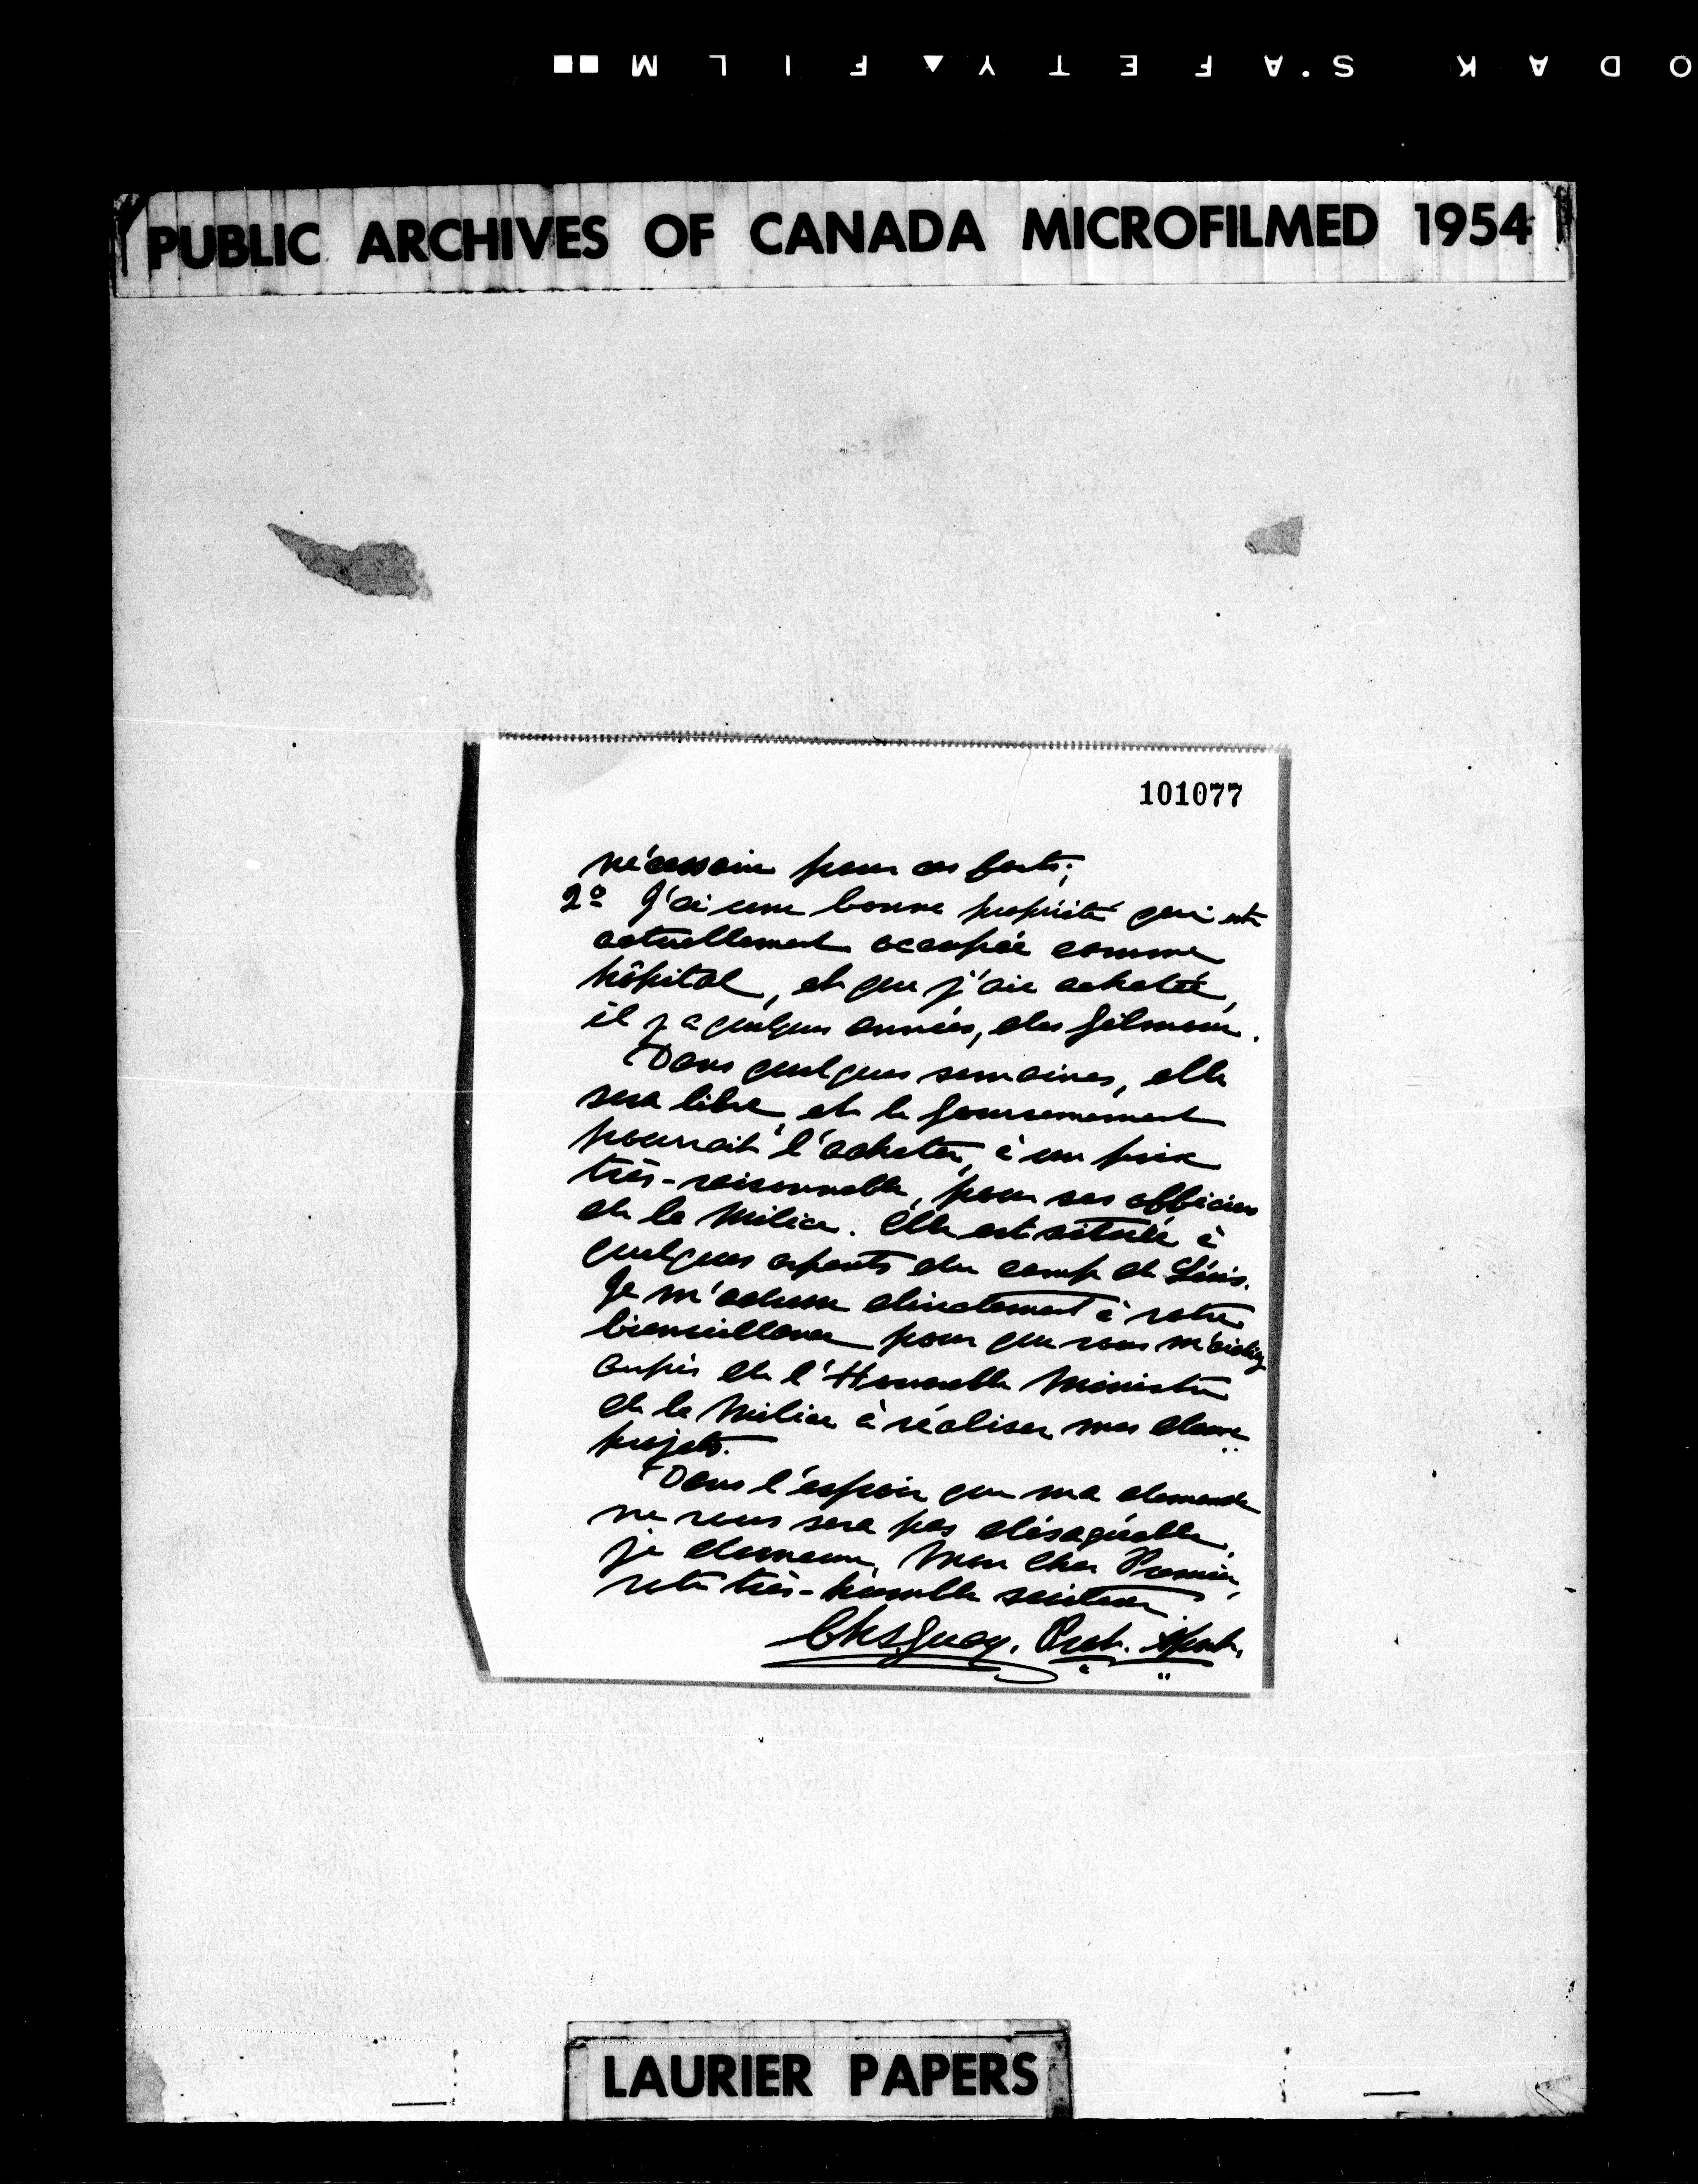 KODAK S'AFETY▲FILM
PUBLIC ARCHIVES OF CANADA MICROFILMED 1954
101077
nécessaire pour ces forts;
2º J'ai une bonne propriété qui est
actuellement occupée comme
hôpital, et que j'ai achetée,
il y a quelques années, des Gilmour.
Dans quelques semaines, elle
sera libre, et le Gouvernement
pourrait l'acheter, à un prix
très-raisonnable, pour ses officiers
de la Milice. Elle est située à
quelques arpents du camp de Lévis.
Je m'adresse directement à votre
bienveillance pour que vous m'aidiez
auprès de l'Honorable Ministre
de la Milice à réaliser mes deux
projets.
Dans l'espoir que ma demande
ne vous sera pas désagréable,
je demeure, Mon Cher Premier,
votre très-humble serviteur.
Chs. Guay, Prot. Apost.
LAURIER PAPERS